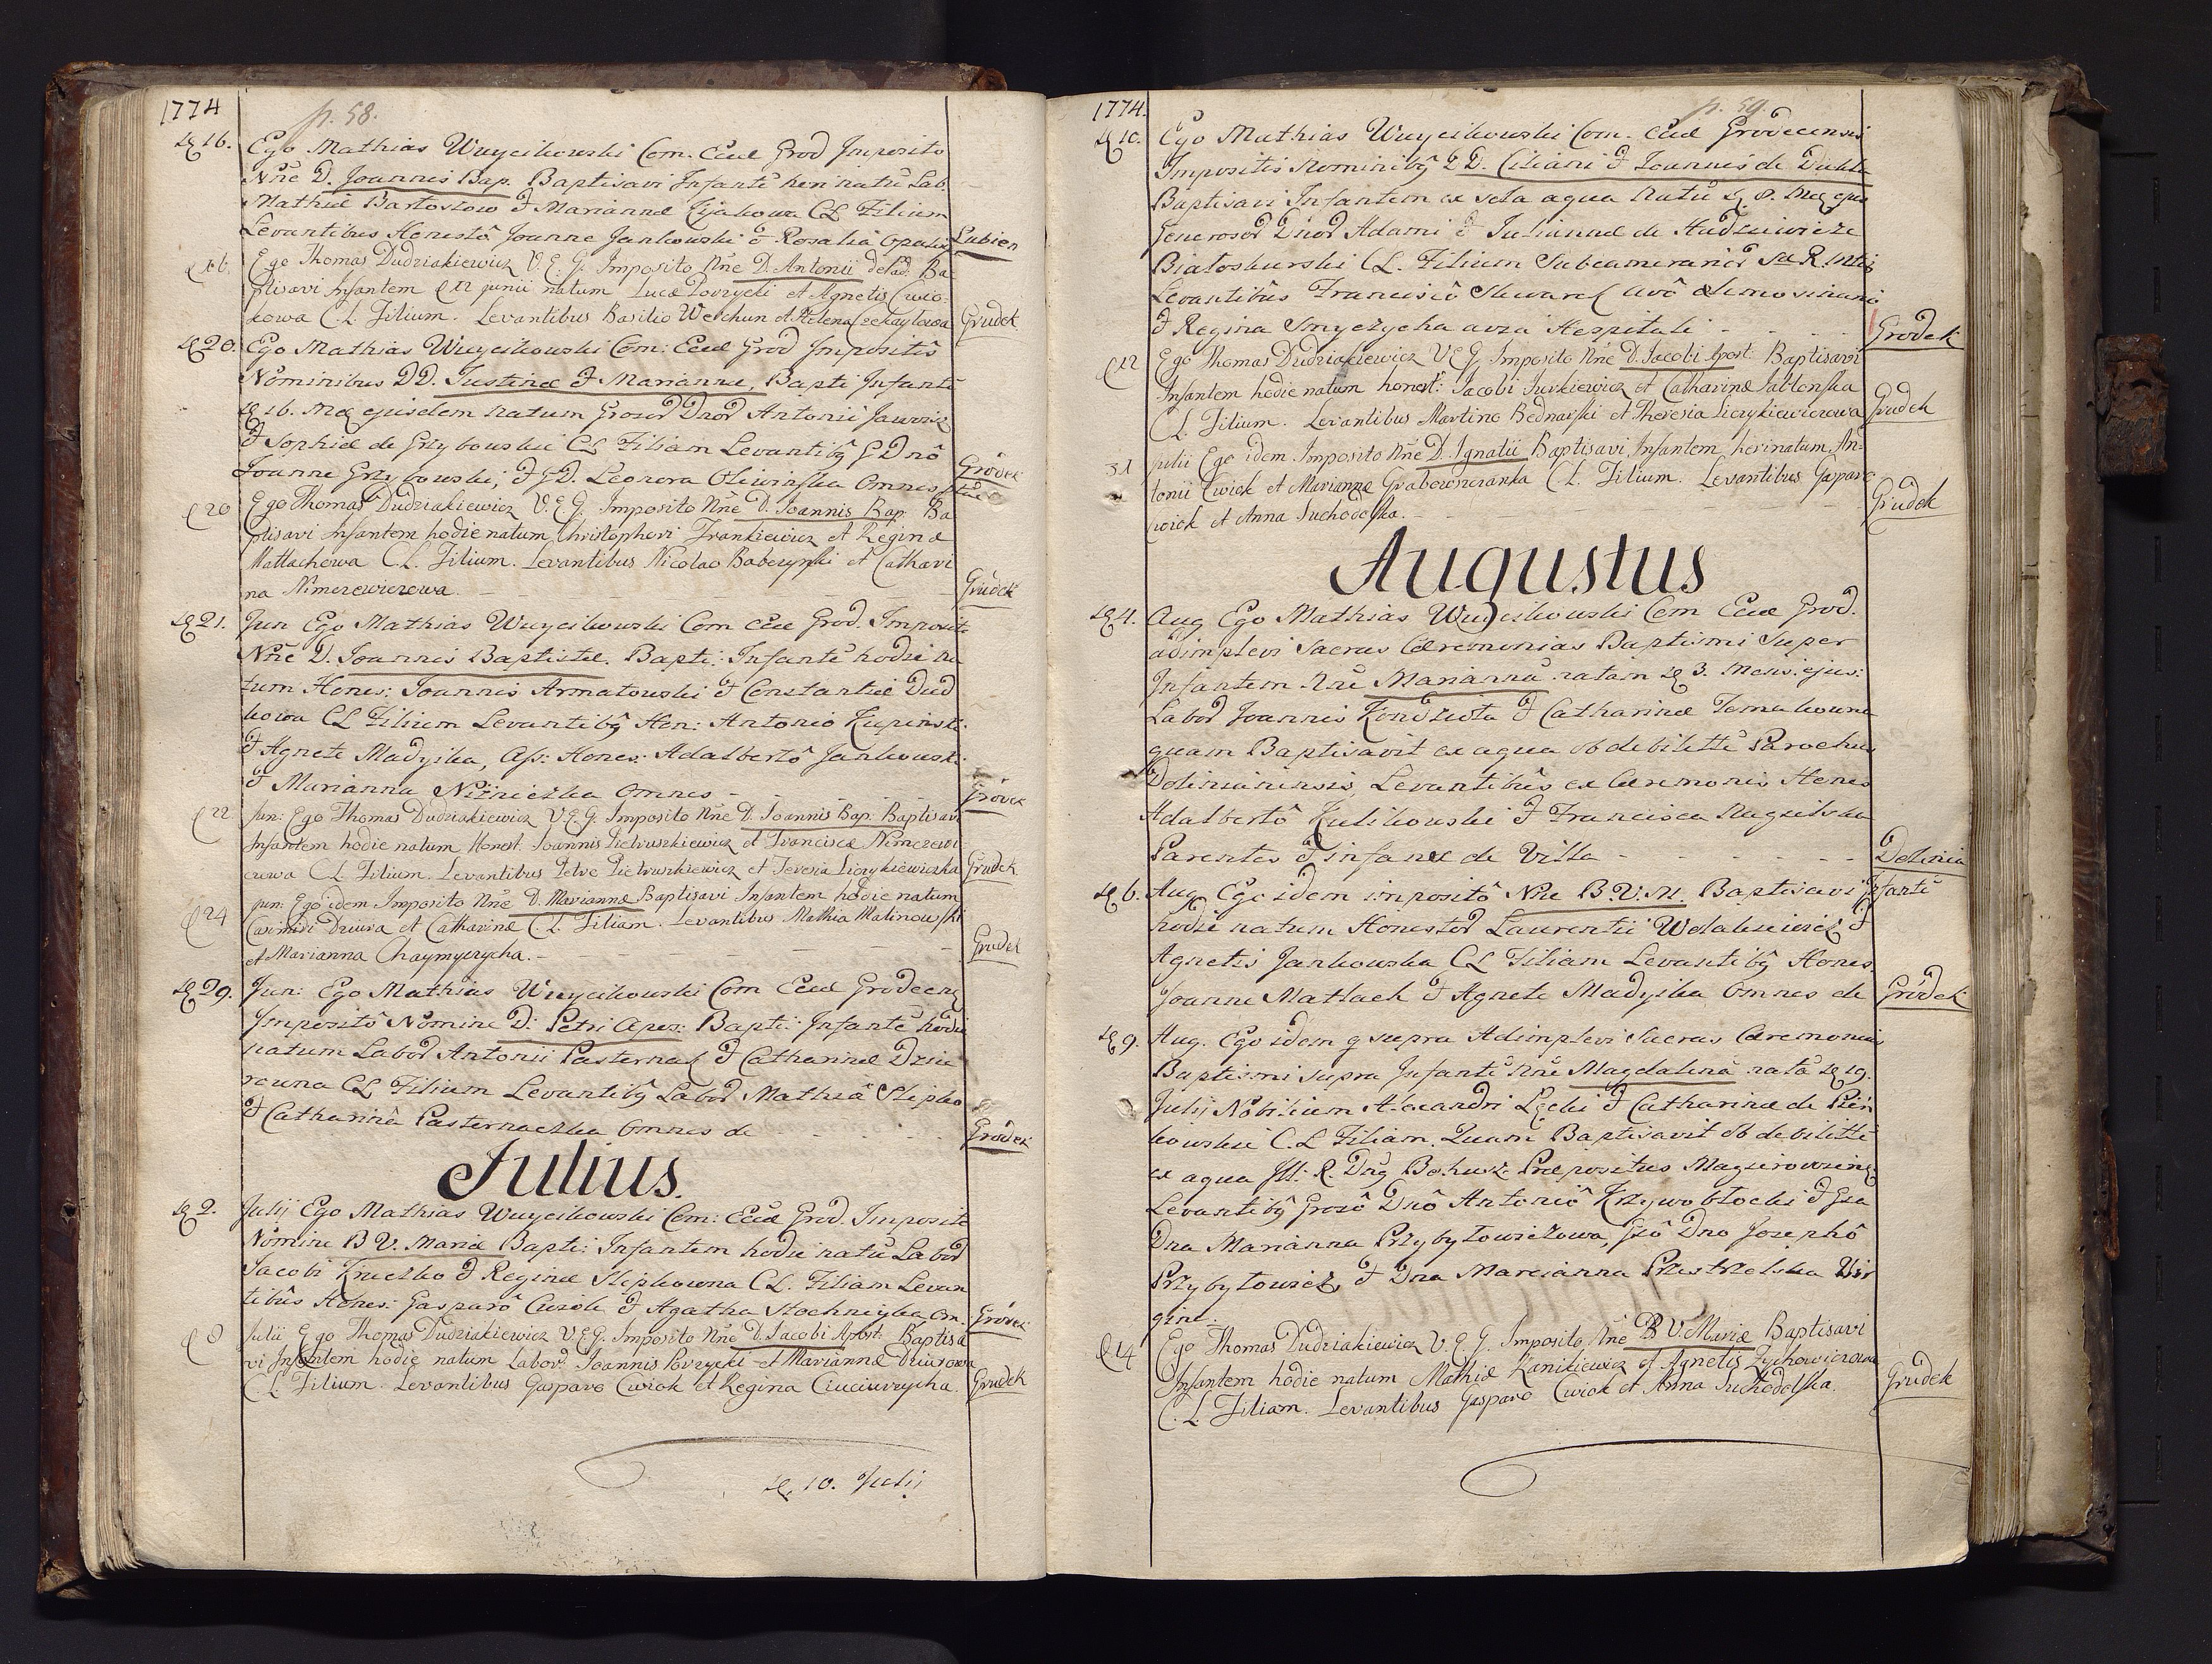 1774
p. 58.
16. Ego Mathias Wuycikowski Com. Eccl Grod Imposito
Nñe D. Joannis Bap. Baptisavi Infantẽ heri natũ Lab.
Mathiæ Bartoszow & Mariannæ CL Filium
Levantibus Honestô Joanne Jankowski & Rosaliâ Lubien
16. Ego Thomas Dudziakiewicz V. E. G. Imposito Nñe D. Antonii de Pad. Ba
ptisavi Infantem 12 junii natum Lucæ Porzycki et Agnetis Cwio-
kowa C. L. Filium. Levantibus Basilio Werchun et Helena Grudek
20. Ego Mathias Wuycikowski Com: Eccl Grod Impositis
Nominibus DD. Justinæ & Mariannæ, Bapti Infantẽ
16. ejusdem natum Antonii Jaworski
& Sophiæ de Grzybowskie CL Filiam Levantibg G Dnô
Joanne Grzybowski, & GD. Leonora Oliwinska Omnes Grodek
20 Ego Thomas Dudziakiewicz V. E. G. Imposito Nñe D. Joannis Bap. Ba
ptisavi Infantem hodie natum Christophori Frankiewicz et Reginæ
Matlachowa C. L. Filium. Levantibus Nicolao Baberzynski et Cathari
na Nimerewiczowa. Grudek
21. Jun Ego Mathias Wuycikowski Com Eccl Grod. Imposito
Nñe D. Joannis Baptistæ. Bapti: Infantẽ hodie na
tum Hones: Joannis Armatowski & Constantiæ Dud
kowa CL Filium Levantibg Hon: Antonio Kupinski
& Agnete Madyska, Ass: Hones: Adalbertô Jankowski
& Marianna Niznieczka Omnes - Grodek
22 Jun: Ego Thomas Dudziakiewicz V. E. G. Imposito Nñe D. Joannis Bap. Baptisavi
Infantem hodie natum Honest. Joannis Pietruszkiewicz et Franciscæ Nimerewi
czowa C. L. Filium. Levantibus Petro Pietruszkiewicz et Teresia Liczykiewiczka Grudek
24 Jun: Ego idem Imposito Nñe D. Mariannæ Baptisavi Infantem hodie natum
Casimiri Dziura et Catharinæ C. L. Filiam. Levantibus Mathia Malinowski
et Marianna Chaymyczycha. - Grudek
29. Jun: Ego Mathias Wuycikowski Com Eccl Grodecen
Impositô Nomine D: Petri Apos: Bapti: Infantẽ hodie
natum Labor Antonii Pasternak & Catharinæ Dziu
rowna CL Filium Levantibg Labor Mathia Slipko
& Catharinâ Pasternaczka Omnes de Grodek
Julius.
2. Julij Ego Mathias Wuycikowski Com: Eccl Grod. Imposito
Nomine B V. Mariæ Bapti: Infantem hodie natũ Labor
Jacobi Kruczko & Reginæ Slipkowna CL. Filiam Levan
tibũs Hones: Gasparô Cwiok & Agatha Om. Grodek
8 Julii Ego Thomas Dudziakiewicz V. E. G. Imposito Nñe D. Jacobi Apost. Baptisa
vi Infantem hodie natum Labor. Joannis Porzycki et Mariannæ Dziurowa
C. L. Filium. Levantibus Gasparo Cwiok et Regina Ciuciurzycha. Grudek
10. Julij
1774.
p. 59.
10. Ego Mathias Wuycikowski Com. Eccl Grodecensis
Impositis Nominibg DD. Ciliani & Joannis de Dukla
Baptisavi Infantem ex sola aqua natũ 8. ejus
Generosor Dnor Adami & Juliannæ de Hudziewicze
Bialoskurski CL. Filium
Levantibũs Franciscô Skwarek avô
& Regina Smyczycha Hospitali - Grodek
12 Ego Thomas Dudziakiewicz V E G. Imposito Nñe D. Jacobi Apost. Baptisavi
Infantem hodie natum honest: Jacobi Jurkiewicz et Catharinæ Jablonska
C. L. Filium. Levantibus Martino Bednarski et Theresia Liczykiewiczowa Grudek
31 julii Ego idem Imposito Nñe D. Ignatii Baptisavi Infantem heri natum, An-
tonii Cwiok et Mariannæ Grabowszczanka C. L. Filium. Levantibus Gasparo
cwiok et Anna Suchodolska. - Grudek
Augustus
4. Aug Ego Mathias Wuycikowski Com Eccl Grod.
adimplevi Sacras Cæremonias Baptismi super
Infantem Nñe Mariannã natam 3. Mens: ejus:
Labor Joannis & Catharinæ Tomakowna
quam Baptisavit ex aqua ob debilitt Parochus
Dolinianensis, Levantibũs ex Cæremonis Hones
Adalbertô Kulikowski & Francisca
Parentes & infans de Villa - Dolinia
6. Aug. Ego idem impositô Nñe B. V. M. Baptisavi Infantẽ
hodie natum Honestor Laurentii & 
Agnetis Jankowska CL Filiam Levantibg Hones.
Joanne Matlach & Agnete Madyska Omnes de Grodek
9. Aug. Ego idem q supra Adimplevi Sacras Cæremonias
Baptismi supra Infantẽ Nñe Magdalenã natã 19.
Julij Nobilium Alexandri Lecki & Catharinæ de Pień
kowskie C. L Filiam. Quam Baptisavit ob debilitt
ex aqua Ill: R. Dng Bohusz Præpositus Magierovien
Levantibg Grosô Dnô Antoniô Krzywoblocki & Gsa
Dna Marianna Przybylowiczowa, Gsô Dno Josephô
Przybylowicz, & Dna Marcianna Przestrzelska Vir
gine.
14 Ego Thomas Dudziakiewicz V. E. G. Imposito Nñe B V. Mariæ Baptisavi
Infantem hodie natum Mathiæ Kanikiewicz et Agnetis Zychowiczowa
C. L. Filiam. Levantibus Gasparo Cwiok et Anna Suchodolska. Grudek